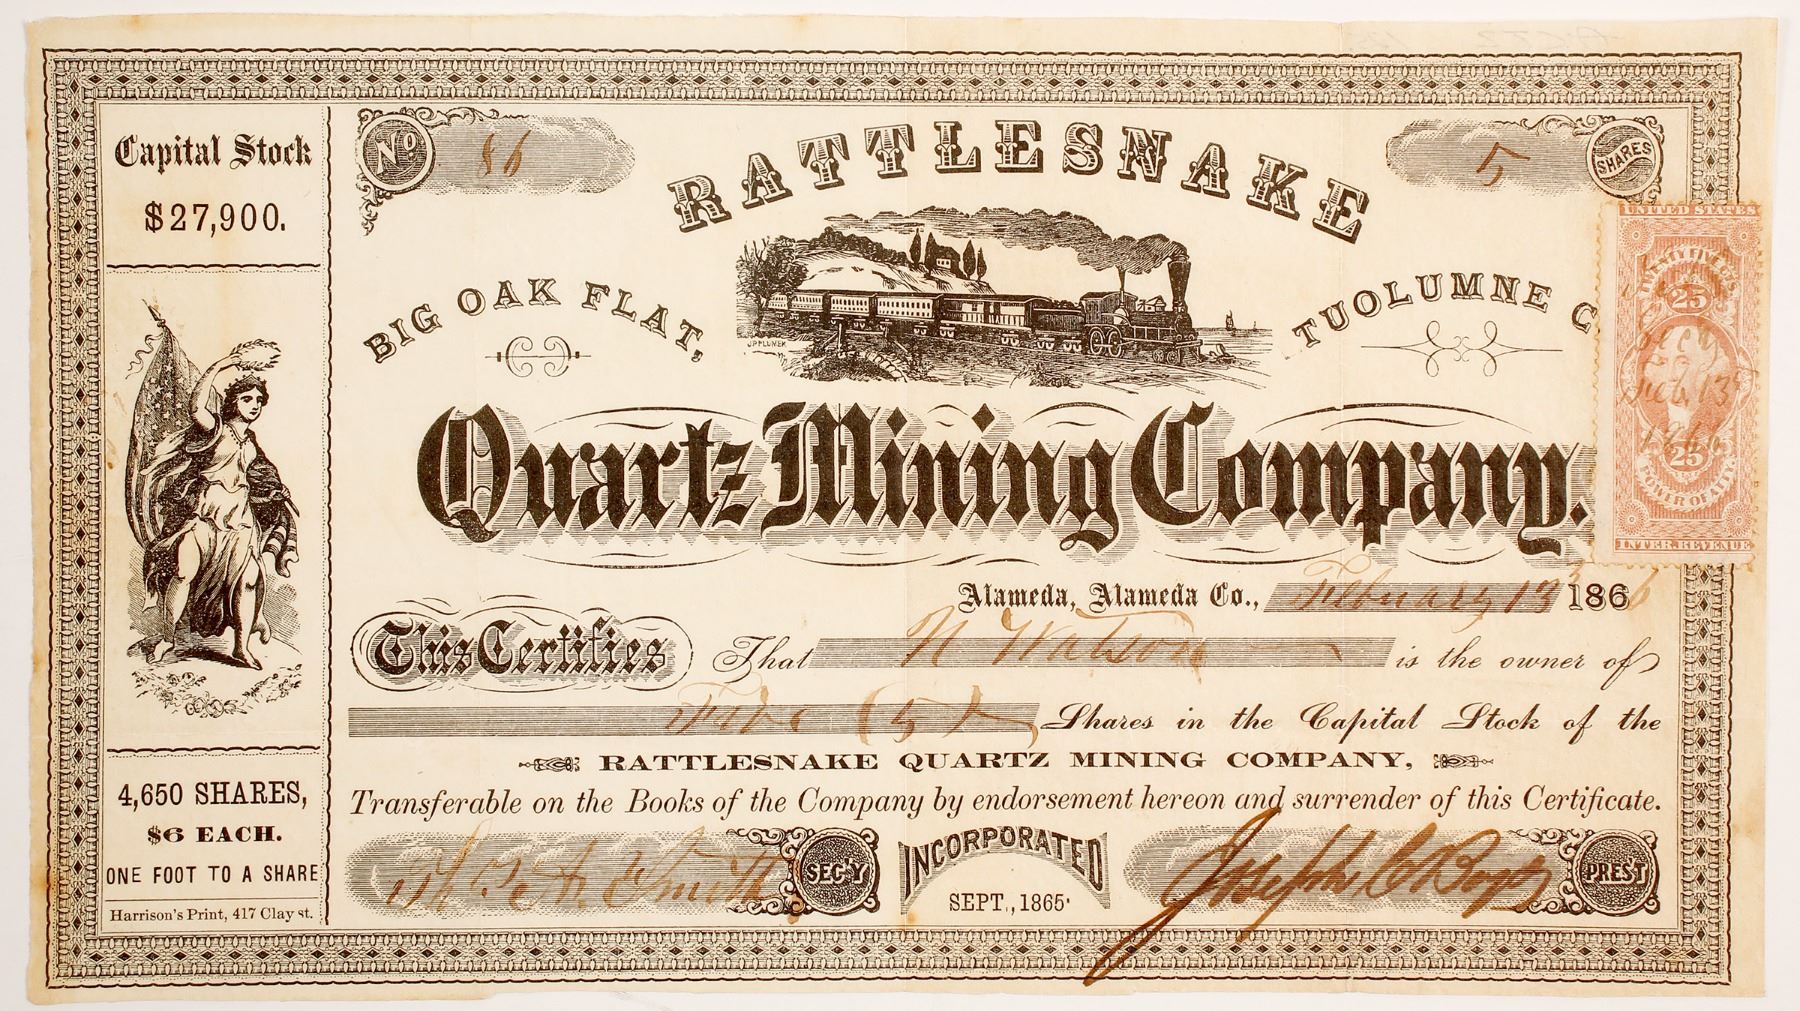 Capital Stock
$27,900.
4,650 SHARES,
$6 EACH.
ONE FOOT TO A SHARE
Harrison's Print, 417 Clay st.
No. 86
5 SHARES
RATTLESNAKE
BIG OAK FLAT,
TUOLUMNE C
J.P.PLUMER
Quartz Mining Company.
Alameda, Alameda Co., February 13th 1866
This Certifies That N Watson is the owner of
Five (5) Shares in the Capital Stock of the
RATTLESNAKE QUARTZ MINING COMPANY,
Transferable on the Books of the Company by endorsement hereon and surrender of this Certificate.
Th. A. Smith SEC'Y
INCORPORATED
SEPT., 1865.
PRES'T
UNITED STATES
25
Secy
Feb. 13
1866
25
POWER OF ATT'Y
INTER. REVENUE